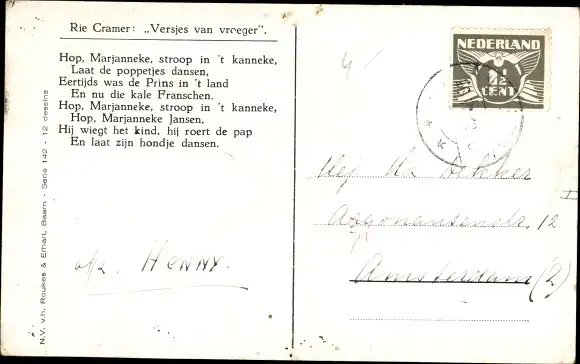 Rie Cramer: „Versjes van vroeger”.
Hop, Marjanneke, stroop in 't kanneke,
Laat de poppetjes dansen,
Eertijds was de Prins in 't land
En nu die kale Franschen.
Hop, Marjanneke, stroop in 't kanneke,
Hop, Marjanneke Jansen,
Hij wiegt het kind, hij roert de pap
En laat zijn hondje dansen.
N.V. v.h. Roukes & Erhart, Baarn - Serie 142 - 12 dessins
afz. HENNY.
NEDERLAND
CENT
Mej Dekker
12
Amsterdam (2)